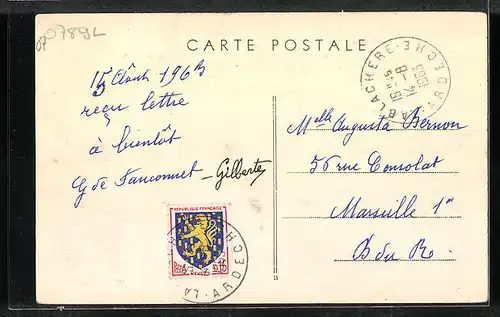 0789L
07
CARTE POSTALE
LABLACHERE
ARDECHE
15H45
15 -8
1963
15 Août 1963
reçu lettre
à bientôt
G de Fauconnet - Gilberte
Melle Augusta Bernon
56 rue Consolat
Marseille 1er
B du R.
REPUBLIQUE FRANÇAISE
0,15
LA
ARDECHE